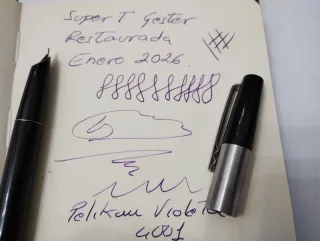 Super T Gester
Restaurada
Enero 2026.
Pelikan Violeta
4001